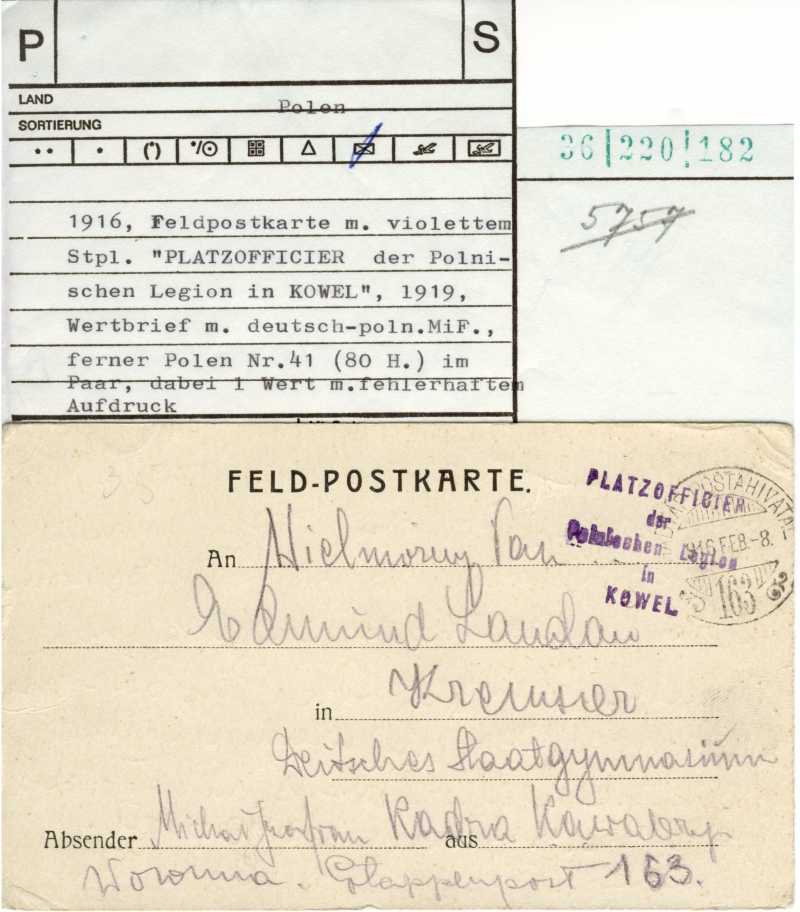 P S
LAND Polen
SORTIERUNG
36 220 182
5757
1916, Feldpostkarte m. violettem
Stpl. "PLATZOFFICIER der Polni-
schen Legion in KOWEL", 1919,
Wertbrief m. deutsch-poln.MiF.,
ferner Polen Nr.41 (80 H.) im
Paar, dabei 1 Wert m.fehlerhaftem
Aufdruck
FELD-POSTKARTE.
PLATZOFFICIER
der
Polnischen Legion
in
KOWEL
1916 FEB.-8.
163
An Wielmożny Pan
Edmund Landau
in Kremsier
Deitsches Staatgymnasium
Absender Kadra aus Kawaleryi
Etappenpost 163.